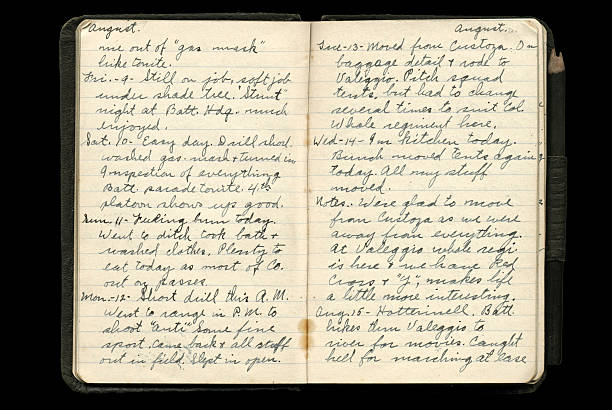 August.
me out of "gas mask"
hike tonite.
Fri.-9- Still on job, soft job
under shade tree. "Stunt"
night at Batt. Hdq. much
enjoyed.
Sat. 10- Easy day. Drill short.
washed gas-mask + turned in
Inspection of everything
Batt. parade tonite. 4th
platoon shows up good.
Sun. 11- Feeling bum today.
Went to ditch took bath +
washed clothes. Plenty to
eat today as most of Co.
out on passes.
Mon.-12- Short drill this A.M.
Went to range in P.M. to
shoot "auti" Some fine
sport. Came back + all stuff
out in field. Slept in open.
August.
Tue-13- Moved from Custoza. On
baggage detail + rode to
Valeggio. Pitch squad
tents but had to change
several times to suit Col.
Whole regiment here.
Wed-14- In kitchen today.
Bunch moved tents again
today. All my stuff
moved.
Notes. Were glad to move
from Custoza as we were
away from everything.
At Valeggio whole regi
is here + we have Red
Cross + "Y", makes life
a little more interesting.
Aug. 15- Hotterinell. Batt.
hikes thru Valeggio to
river for movies. Caught
hell for marching at ease